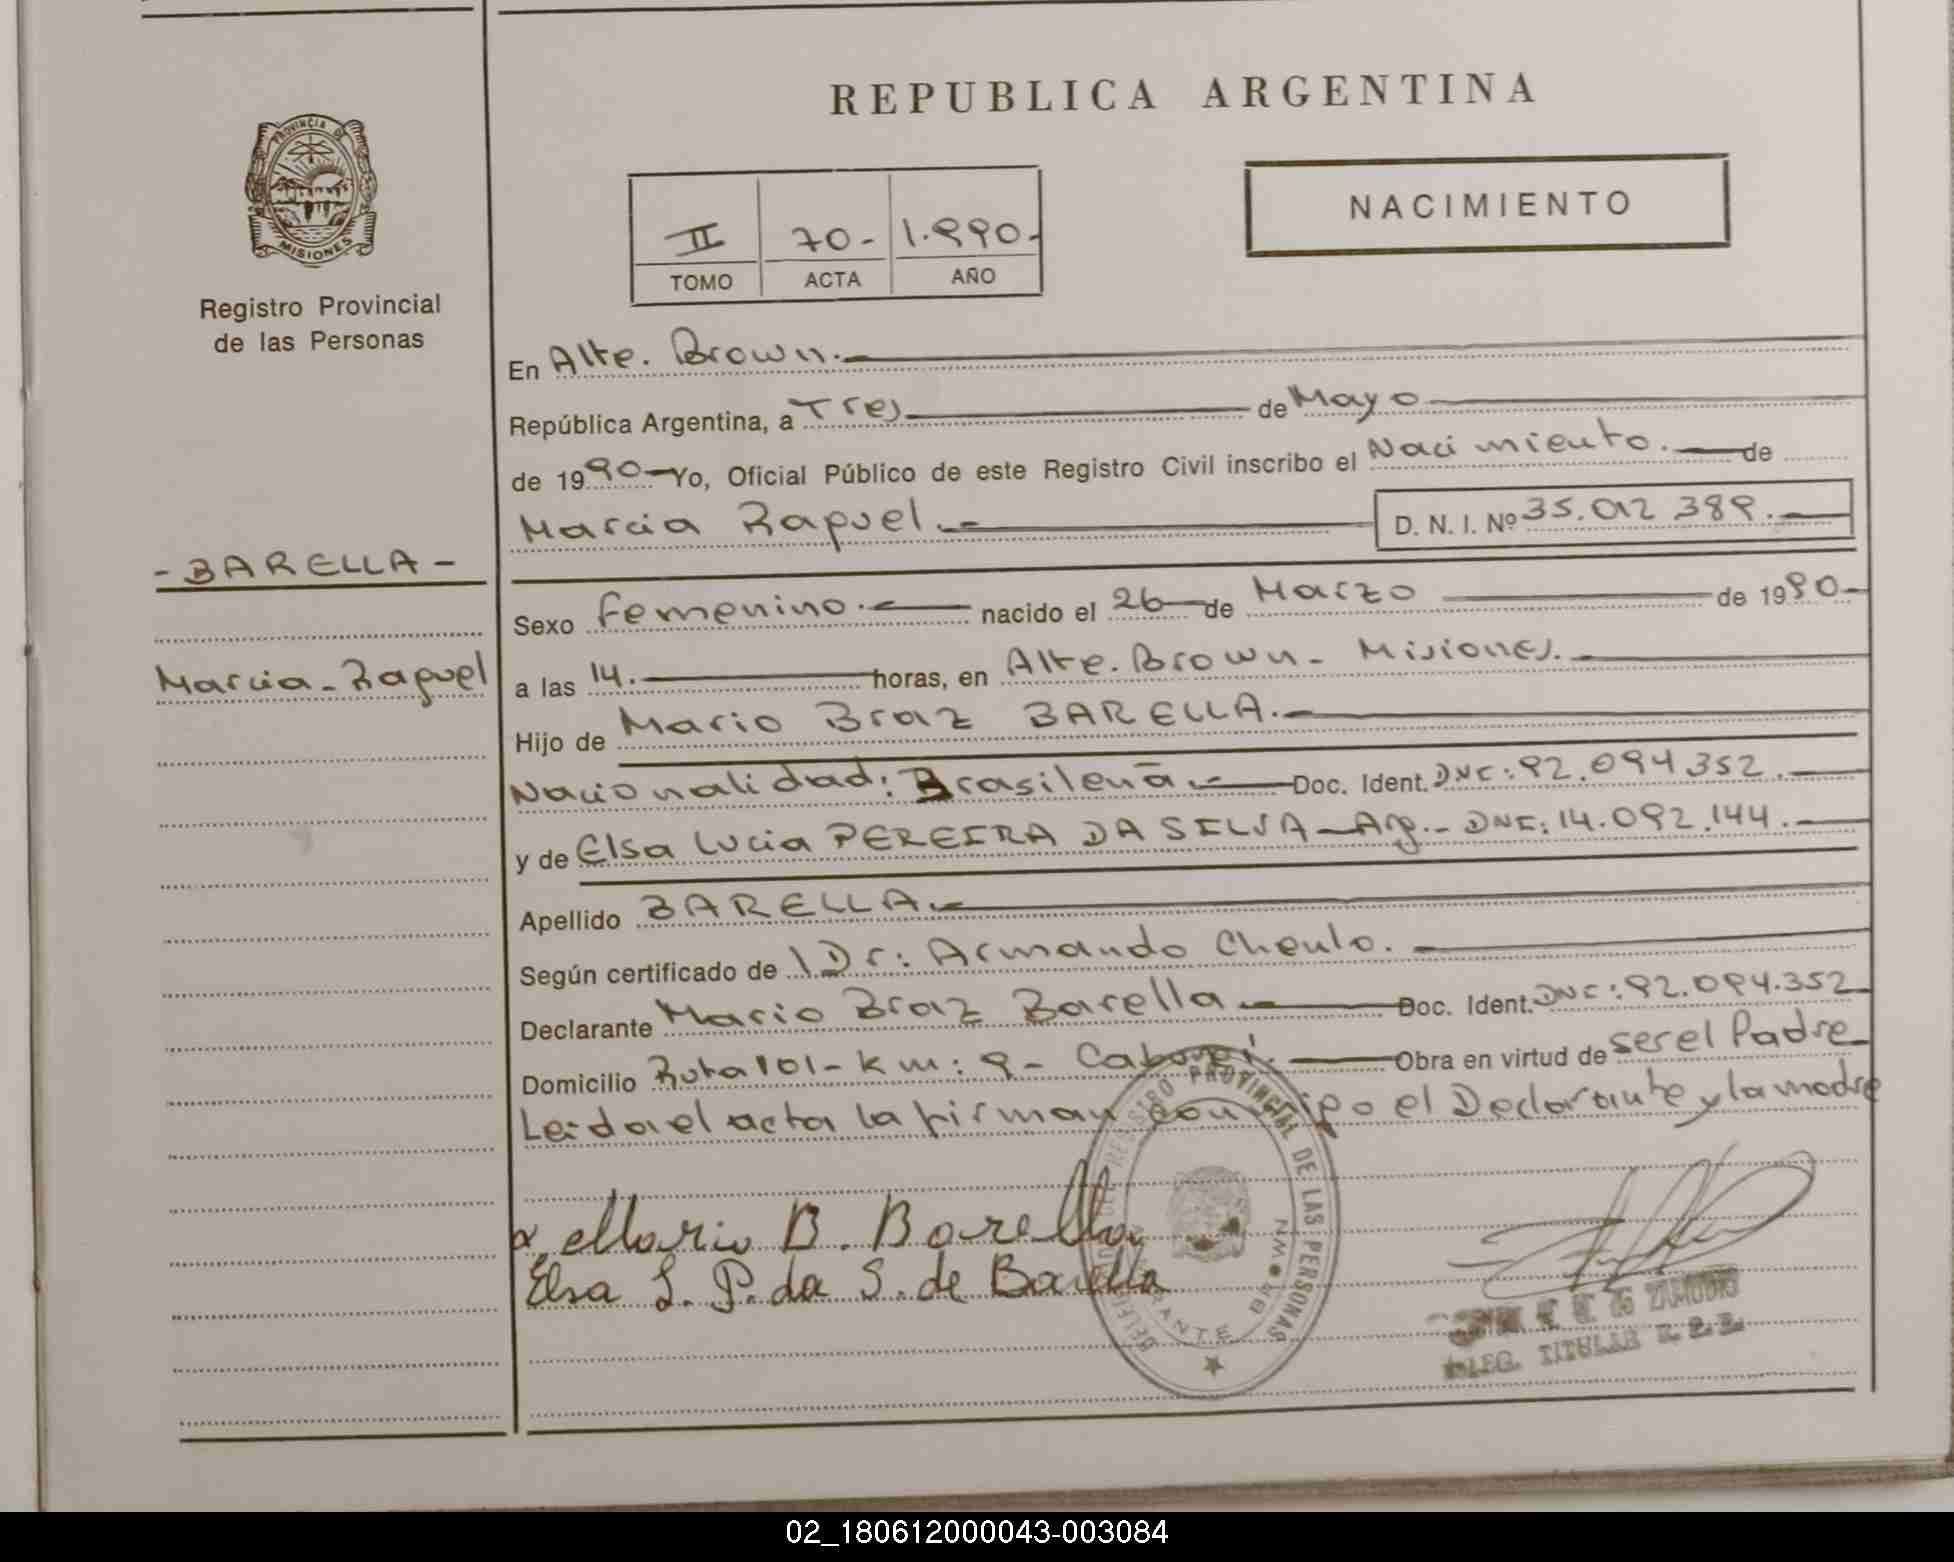 REPUBLICA ARGENTINA
PROVINCIA DE
MISIONES
Registro Provincial
de las Personas
NACIMIENTO
II 70- 1.990-
TOMO ACTA AÑO
En Alte. Brown.
República Argentina, a Tres de Mayo
de 1990 Yo, Oficial Público de este Registro Civil inscribo el Nacimiento. de
Marcia Raquel. D. N. I. Nº 35.012.389.
- BARELLA -
Marcia - Raquel
Sexo Femenino. nacido el 26 de Marzo de 1990-
a las 14. horas, en Alte. Brown - Misiones.
Hijo de Mario Braz BARELLA.
Nacionalidad: Brasilena Doc. Ident. DNI: 92.094.352.
y de Elsa Lucia PEREIRA DA SILVA - Arg. - DNI: 14.092.144.
Apellido BARELLA
Según certificado de Dr: Armando
Declarante Mario Braz Barella Doc. Ident. DNI: 92.094.352
Domicilio Ruta 101 - Km: 9 - Obra en virtud de ser el Padre
Leida el acta la firman conmigo el Declarante y la madre
Mario B. Barella
Elsa L. P. da S. de Barella
REGISTRO PROVINCIAL DE LAS PERSONAS
ALMIRANTE BROWN
ZAMUDIO
DELEG. TITULAR R. P. P.
02_180612000043-003084